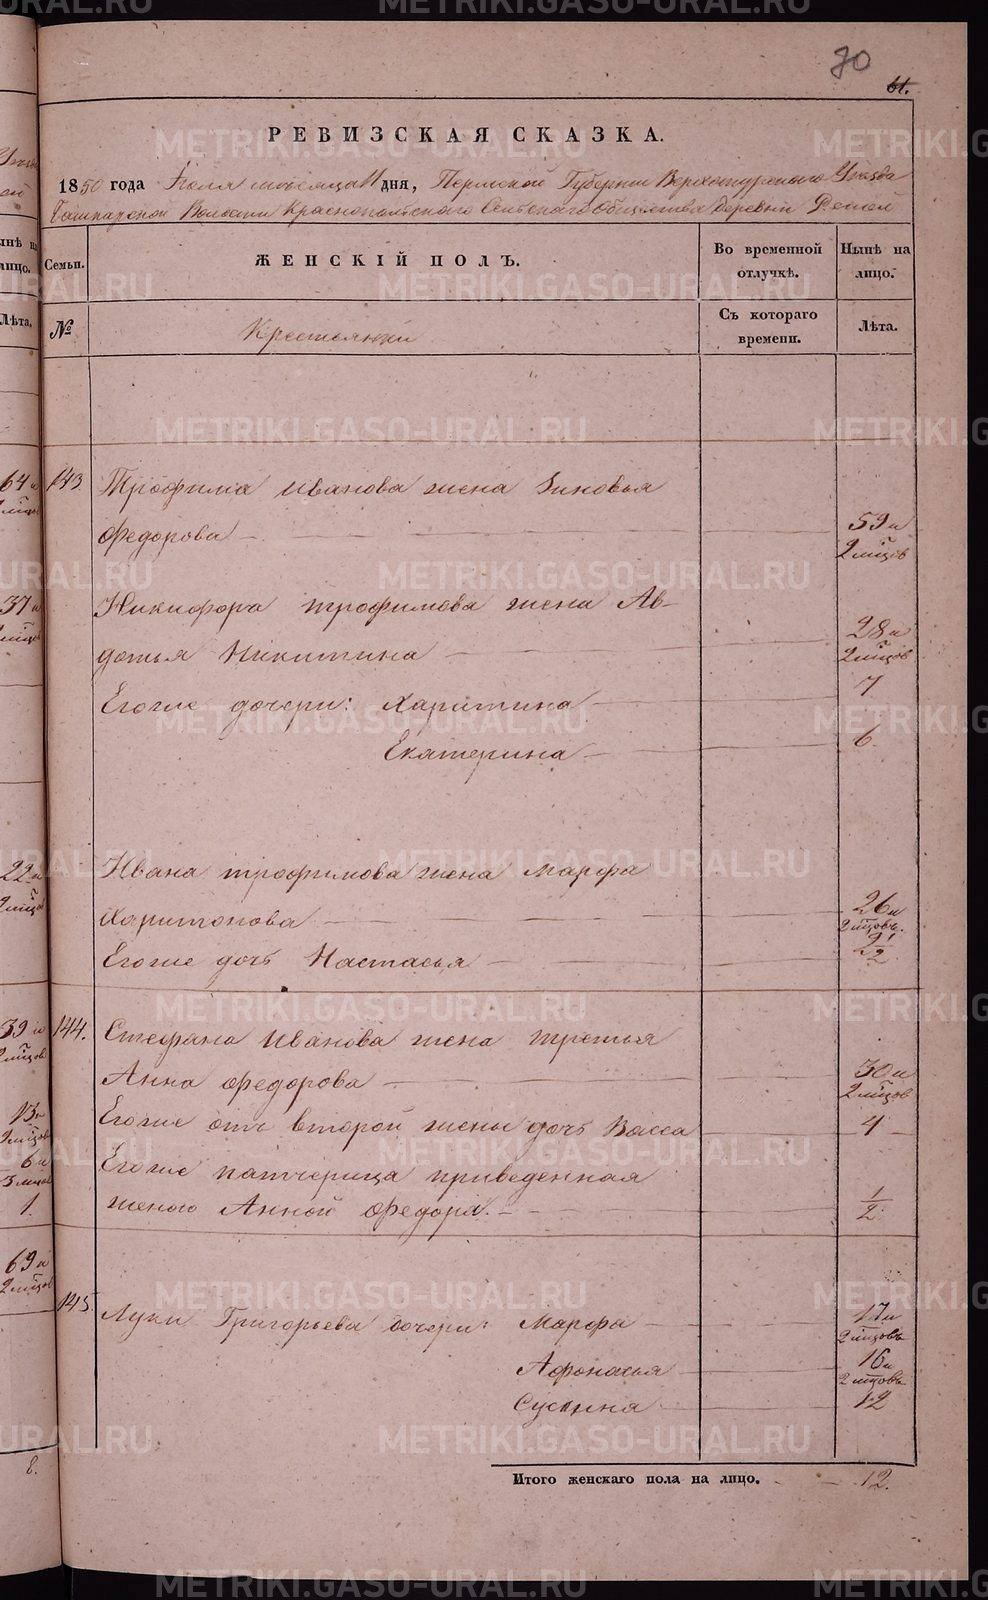 METRIKI.GASO-URAL.RU
70
61.
РЕВИЗСКАЯ СКАЗКА.
1850 года Іюля месяца 11 дня, Пермской Губернии Верхотурского Уезда
Волости Краснопольского Сельского Общества деревни
Семьи.
ЖЕНСКІЙ ПОЛЪ.
Во временной отлучкѣ.
Нынѣ на лицо.
№
Крестьянки
Съ котораго времени.
Лѣта.
143 Трофима Иванова жена Зиновья
Федорова 59 и 2 мцов
Никифора трофимова жена Ав-
дотья Никитина 28 и 2 мцов
Егоже дочери: Харитина 7
Екатерина 6.
Ивана трофимова жена Марфа
Харитонова 26 и 2 мцовъ.
Егоже дочь Настасья 2 1/2
144. Стефана Иванова жена третья
Анна федорова 30 и 2 мцов
Егоже отъ второй жены дочь Васса 4
Егоже патчерица приведенная
женою Анной федора. 1/2
145 Луки Григорьева дочери: Марфа 17 и 2 мцовъ
Афонасья 16 и 2 мцовъ
12
Итого женскаго пола на лицо. 12.
нынѣ на лицо.
Лѣта,
64 и
37 и
22 и
39 и
2 мцов
13 и
2 мцов
6 и
3 мцов
1.
69 и
2 мцов
8.